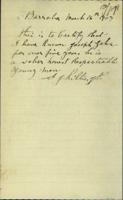 Barraba March 16th 1903
This is to Certify that
I have known Joseph
for over five years he is
a sober honest Respectable
Young man